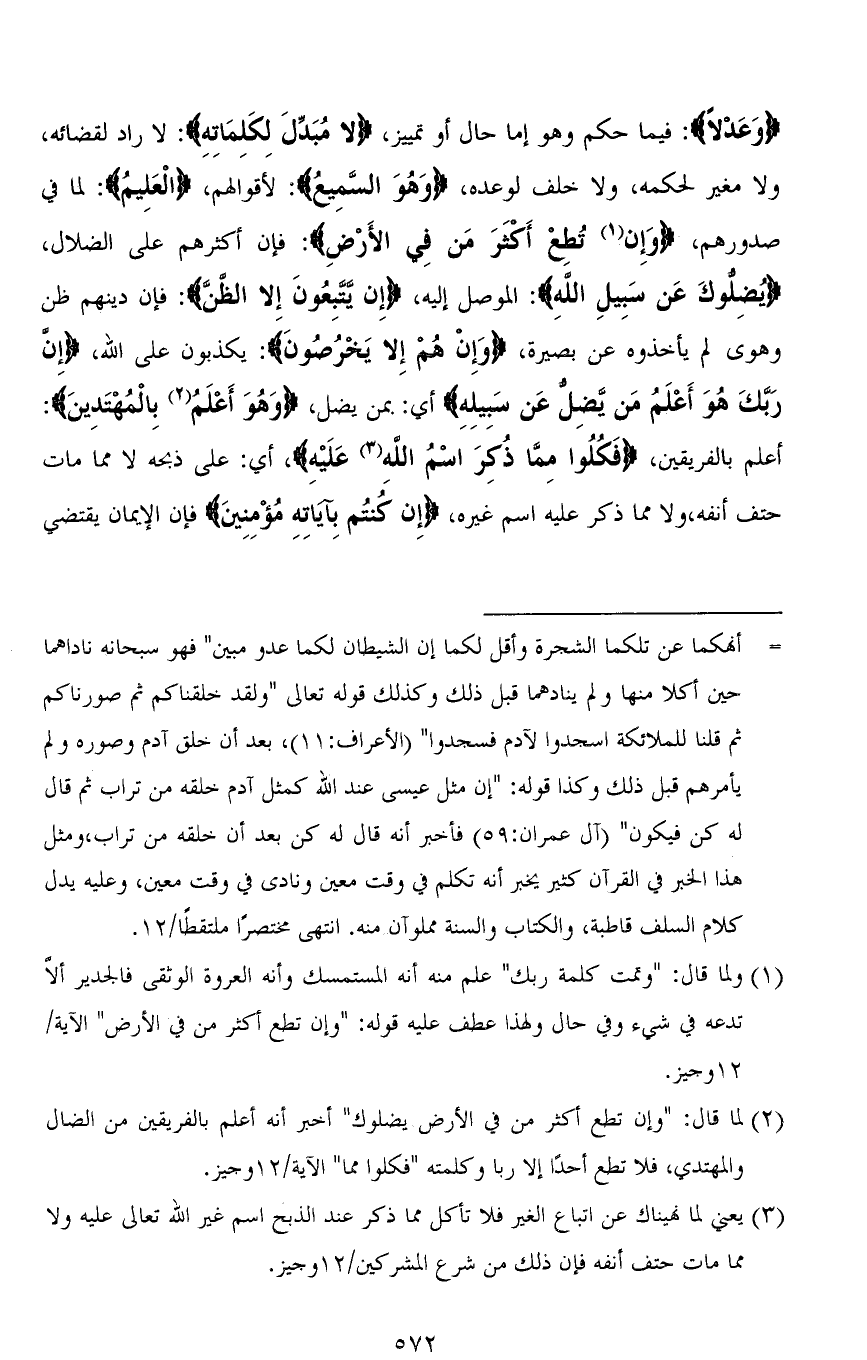 ﴿وَعَدْلاً﴾: فيما حكم وهو إما حال أو تمييز، ﴿لا مُبَدِّلَ لِكَلِمَاتِهِ﴾: لا راد لقضائه،
ولا مغير لحكمه، ولا خلف لوعده، ﴿وَهُوَ السَّمِيعُ﴾: لأقوالهم، ﴿الْعَلِيمُ﴾: لما في
صدورهم، ﴿وَإِن(١) تُطِعْ أَكْثَرَ مَن فِي الأَرْضِ﴾: فإن أكثرهم على الضلال،
﴿يُضِلُّوكَ عَن سَبِيلِ اللَّهِ﴾: الموصل إليه، ﴿إِن يَتَّبِعُونَ إِلا الظَّنَّ﴾: فإن دينهم ظن
وهوى لم يأخذوه عن بصيرة، ﴿وَإِنْ هُمْ إِلا يَخْرُصُونَ﴾: يكذبون على الله، ﴿إِنَّ
رَبَّكَ هُوَ أَعْلَمُ مَن يَّضِلُّ عَن سَبِيلِهِ﴾ أي: بمن يضل، ﴿وَهُوَ أَعْلَمُ(٢) بِالْمُهْتَدِينَ﴾:
أعلم بالفريقين، ﴿فَكُلُوا مِمَّا ذُكِرَ اسْمُ اللَّهِ(٣) عَلَيْهِ﴾، أي: على ذبحه لا مما مات
حتف أنفه،ولا مما ذكر عليه اسم غيره، ﴿إِن كُنتُم بِآيَاتِهِ مُؤْمِنِينَ﴾ فإن الإيمان يقتضي
= أنهكما عن تلكما الشجرة وأقل لكما إن الشيطان لكما عدو مبين" فهو سبحانه ناداهما
حين أكلا منها و لم ينادهما قبل ذلك وكذلك قوله تعالى "ولقد خلقناكم ثم صورناكم
ثم قلنا للملائكة اسجدوا لآدم فسجدوا" (الأعراف:١١)، بعد أن خلق آدم وصوره و لم
يأمرهم قبل ذلك وكذا قوله: "إن مثل عيسى عند الله كمثل آدم خلقه من تراب ثم قال
له كن فيكون" (آل عمران:٥٩) فأخبر أنه قال له كن بعد أن خلقه من تراب،ومثل
هذا الخبر في القرآن كثير يخبر أنه تكلم في وقت معين ونادى في وقت معين، وعليه يدل
كلام السلف قاطبة، والكتاب والسنة مملوآن منه. انتهى مختصرًا ملتقطًا/١٢.
(١) ولما قال: "وتمت كلمة ربك" علم منه أنه المستمسك وأنه العروة الوثقى فالجدير ألاَّ
تدعه في شيء وفي حال ولهذا عطف عليه قوله: "وإن تطع أكثر من في الأرض" الآية/
١٢وجيز.
(٢) لما قال: "وإن تطع أكثر من في الأرض يضلوك" أخبر أنه أعلم بالفريقين من الضال
والمهتدي، فلا تطع أحدًا إلا ربا وكلمته "فكلوا مما" الآية/١٢وجيز.
(٣) يعني لما نهيناك عن اتباع الغير فلا تأكل مما ذكر عند الذبح اسم غير الله تعالى عليه ولا
مما مات حتف أنفه فإن ذلك من شرع المشركين/١٢وجيز.
٥٧٢